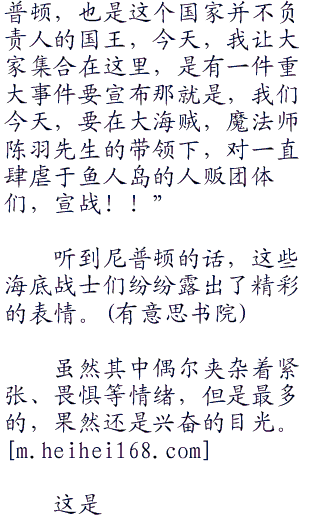 普顿，也是这个国家并不负
责人的国王，今天，我让大
家集合在这里，是有一件重
大事件要宣布那就是，我们
今天，要在大海贼，魔法师
陈羽先生的带领下，对一直
肆虐于鱼人岛的人贩团体
们，宣战！！”
听到尼普顿的话，这些
海底战士们纷纷露出了精彩
的表情。(有意思书院)
虽然其中偶尔夹杂着紧
张、畏惧等情绪，但是最多
的，果然还是兴奋的目光。
[m.heihei168.com]
这是